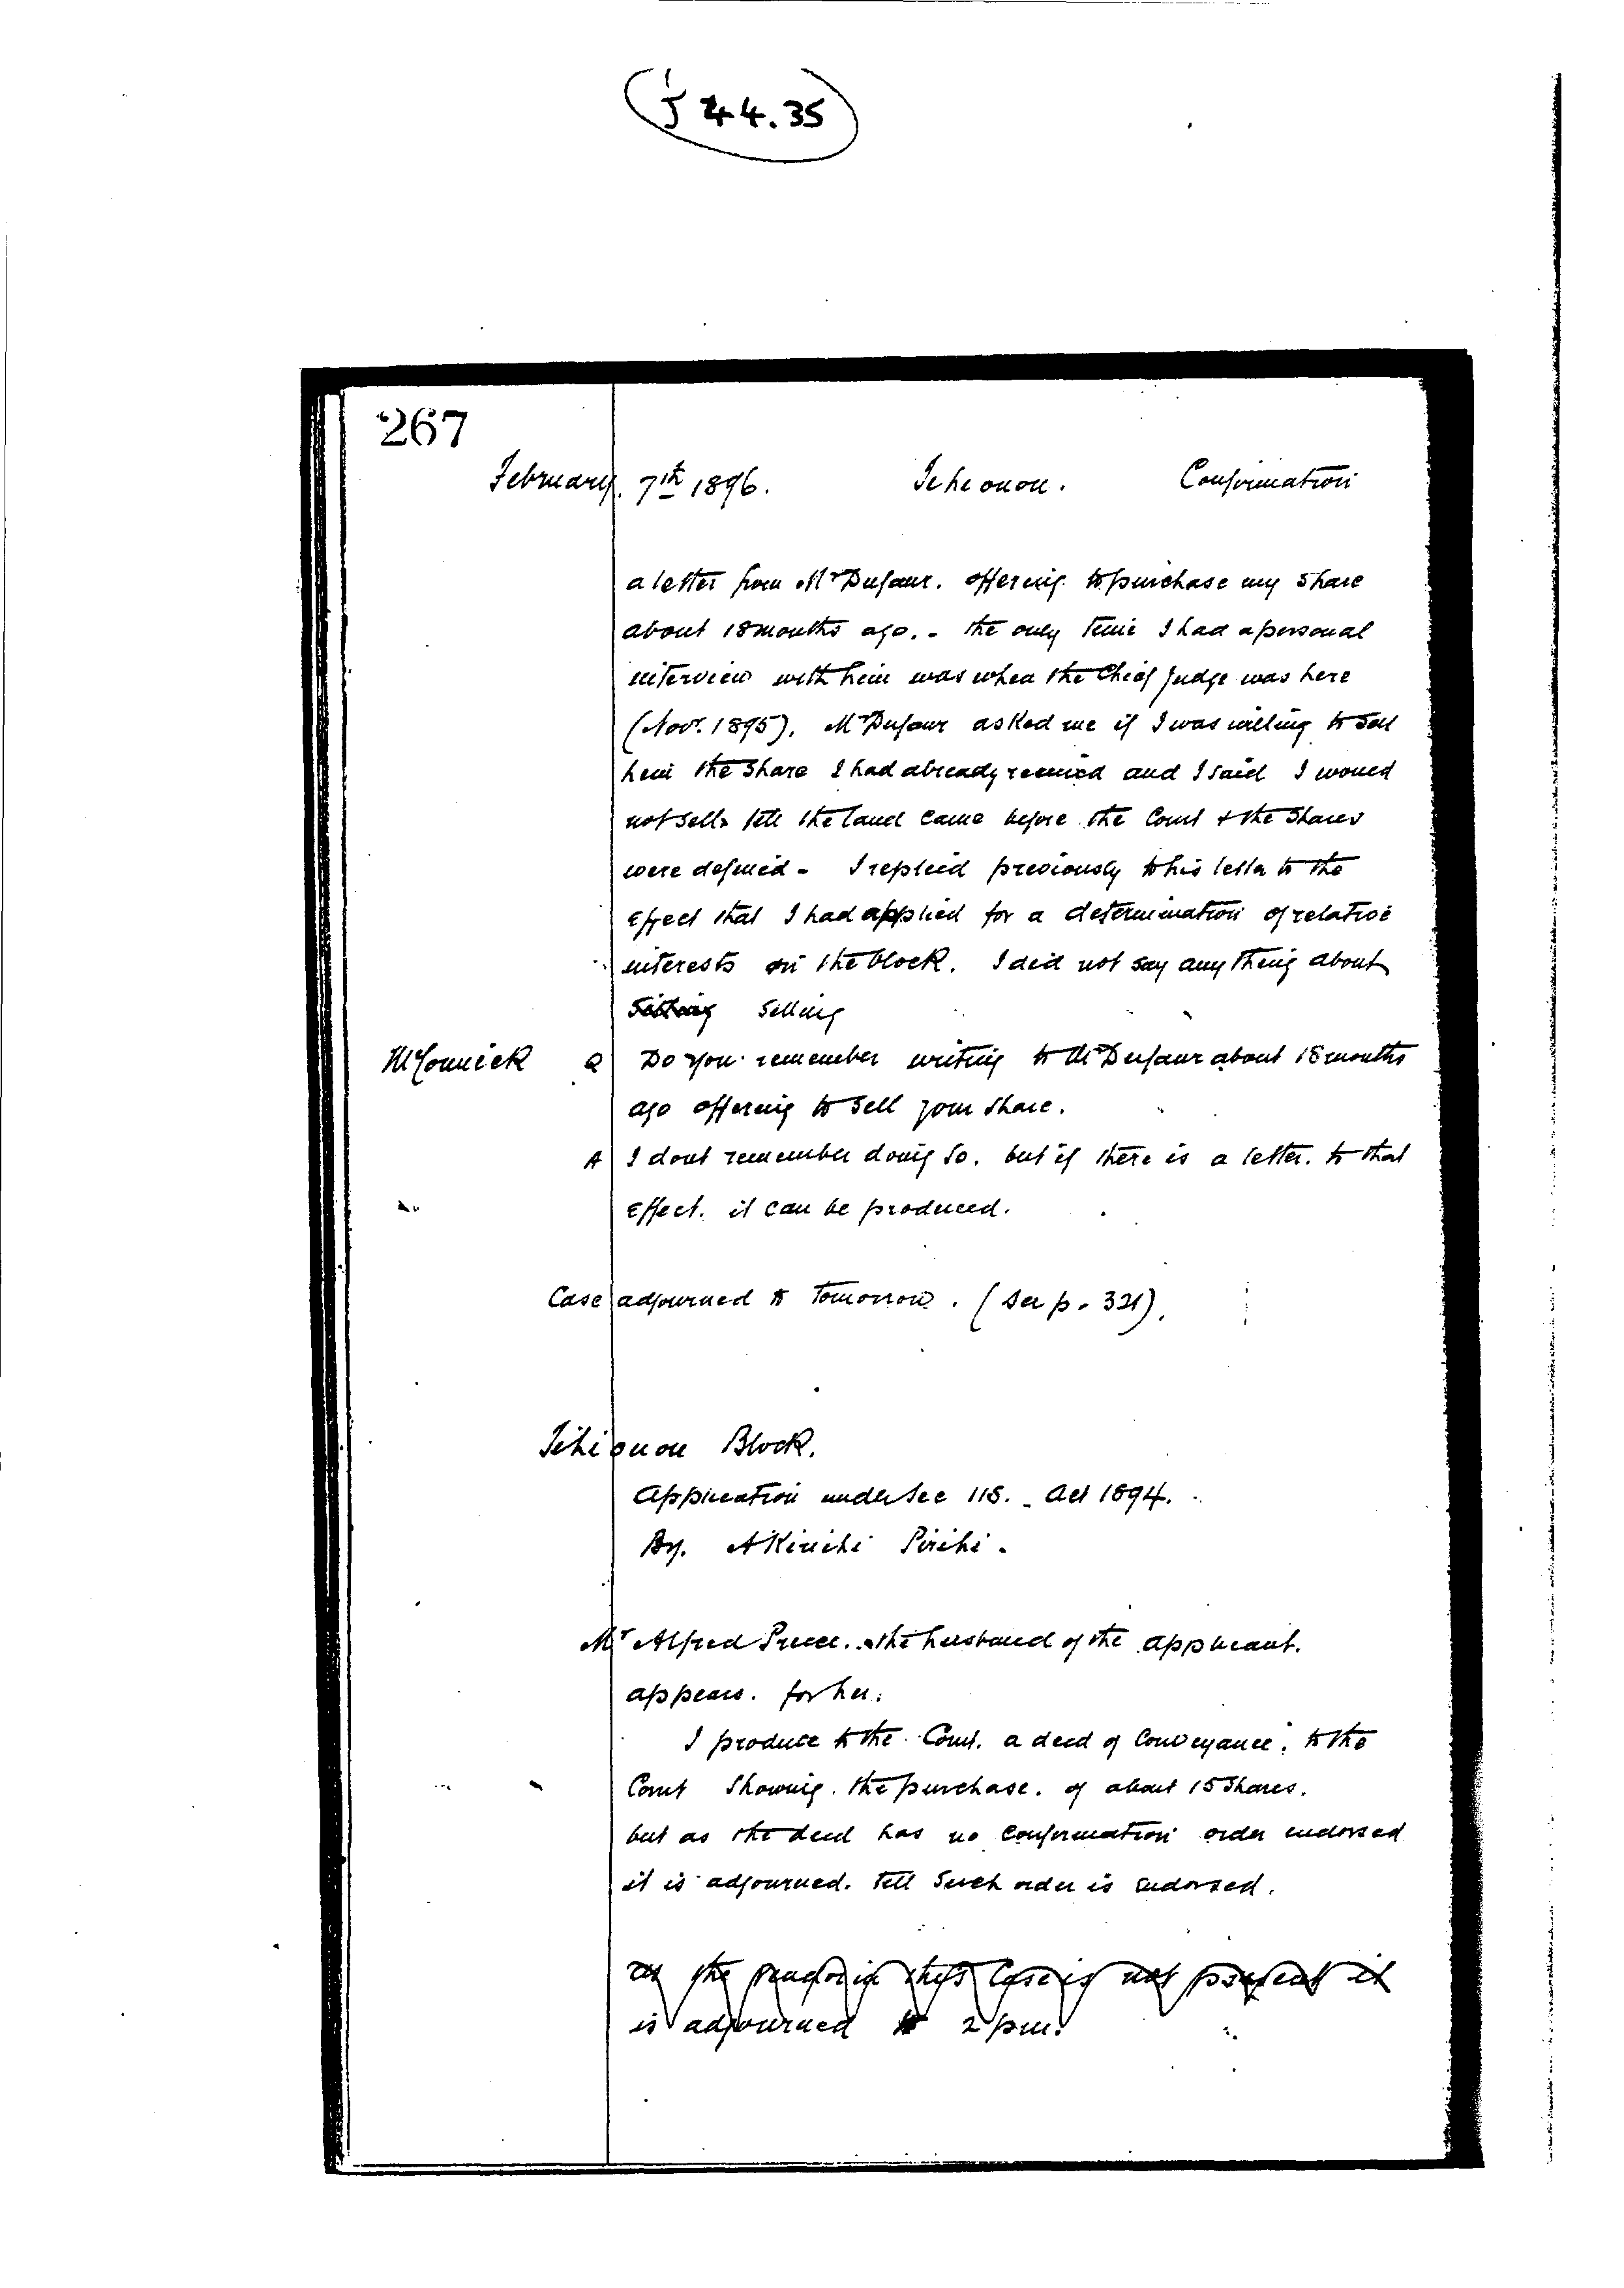 J 44.35
267
February. 7th 1896. Teheonou. Confirmation
a letter from Mr Dufaur. offering to purchase my share
about 18 months ago. - the only time I had a personal
interview with him was when the Chief Judge was here
(Novr. 1895). Mr Dufaur asked me if I was willing to sell
him the share I had already received and I said I would
not sell till the land came before the Court & the Shares
were defined - I replied previously to his letter to the
effect that I had applied for a determination of relative
interests in the block. I did not say any thing about
selling
McCormick Q Do you remember writing to Mr Dufaur about 18 months
ago offering to sell your share.
A I dont remember doing so. but if there is a letter. to that
effect. it can be produced.
Case adjourned to tomorrow. (See p. 321).
Teheonou Block.
Application under Sec 118. - Act 1894.
By. Akinihi Pirihi.
Mr Alfred Preece. the husband of the applicant.
appears. for her:
I produce to the Court. a deed of Conveyance. to the
Court Showing. the purchase. of about 15 Shares.
but as the deed has no Confirmation order endorsed
it is adjourned. till such order is endorsed.
As the vendor in this Case is not present it
is adjourned to 2 pm.